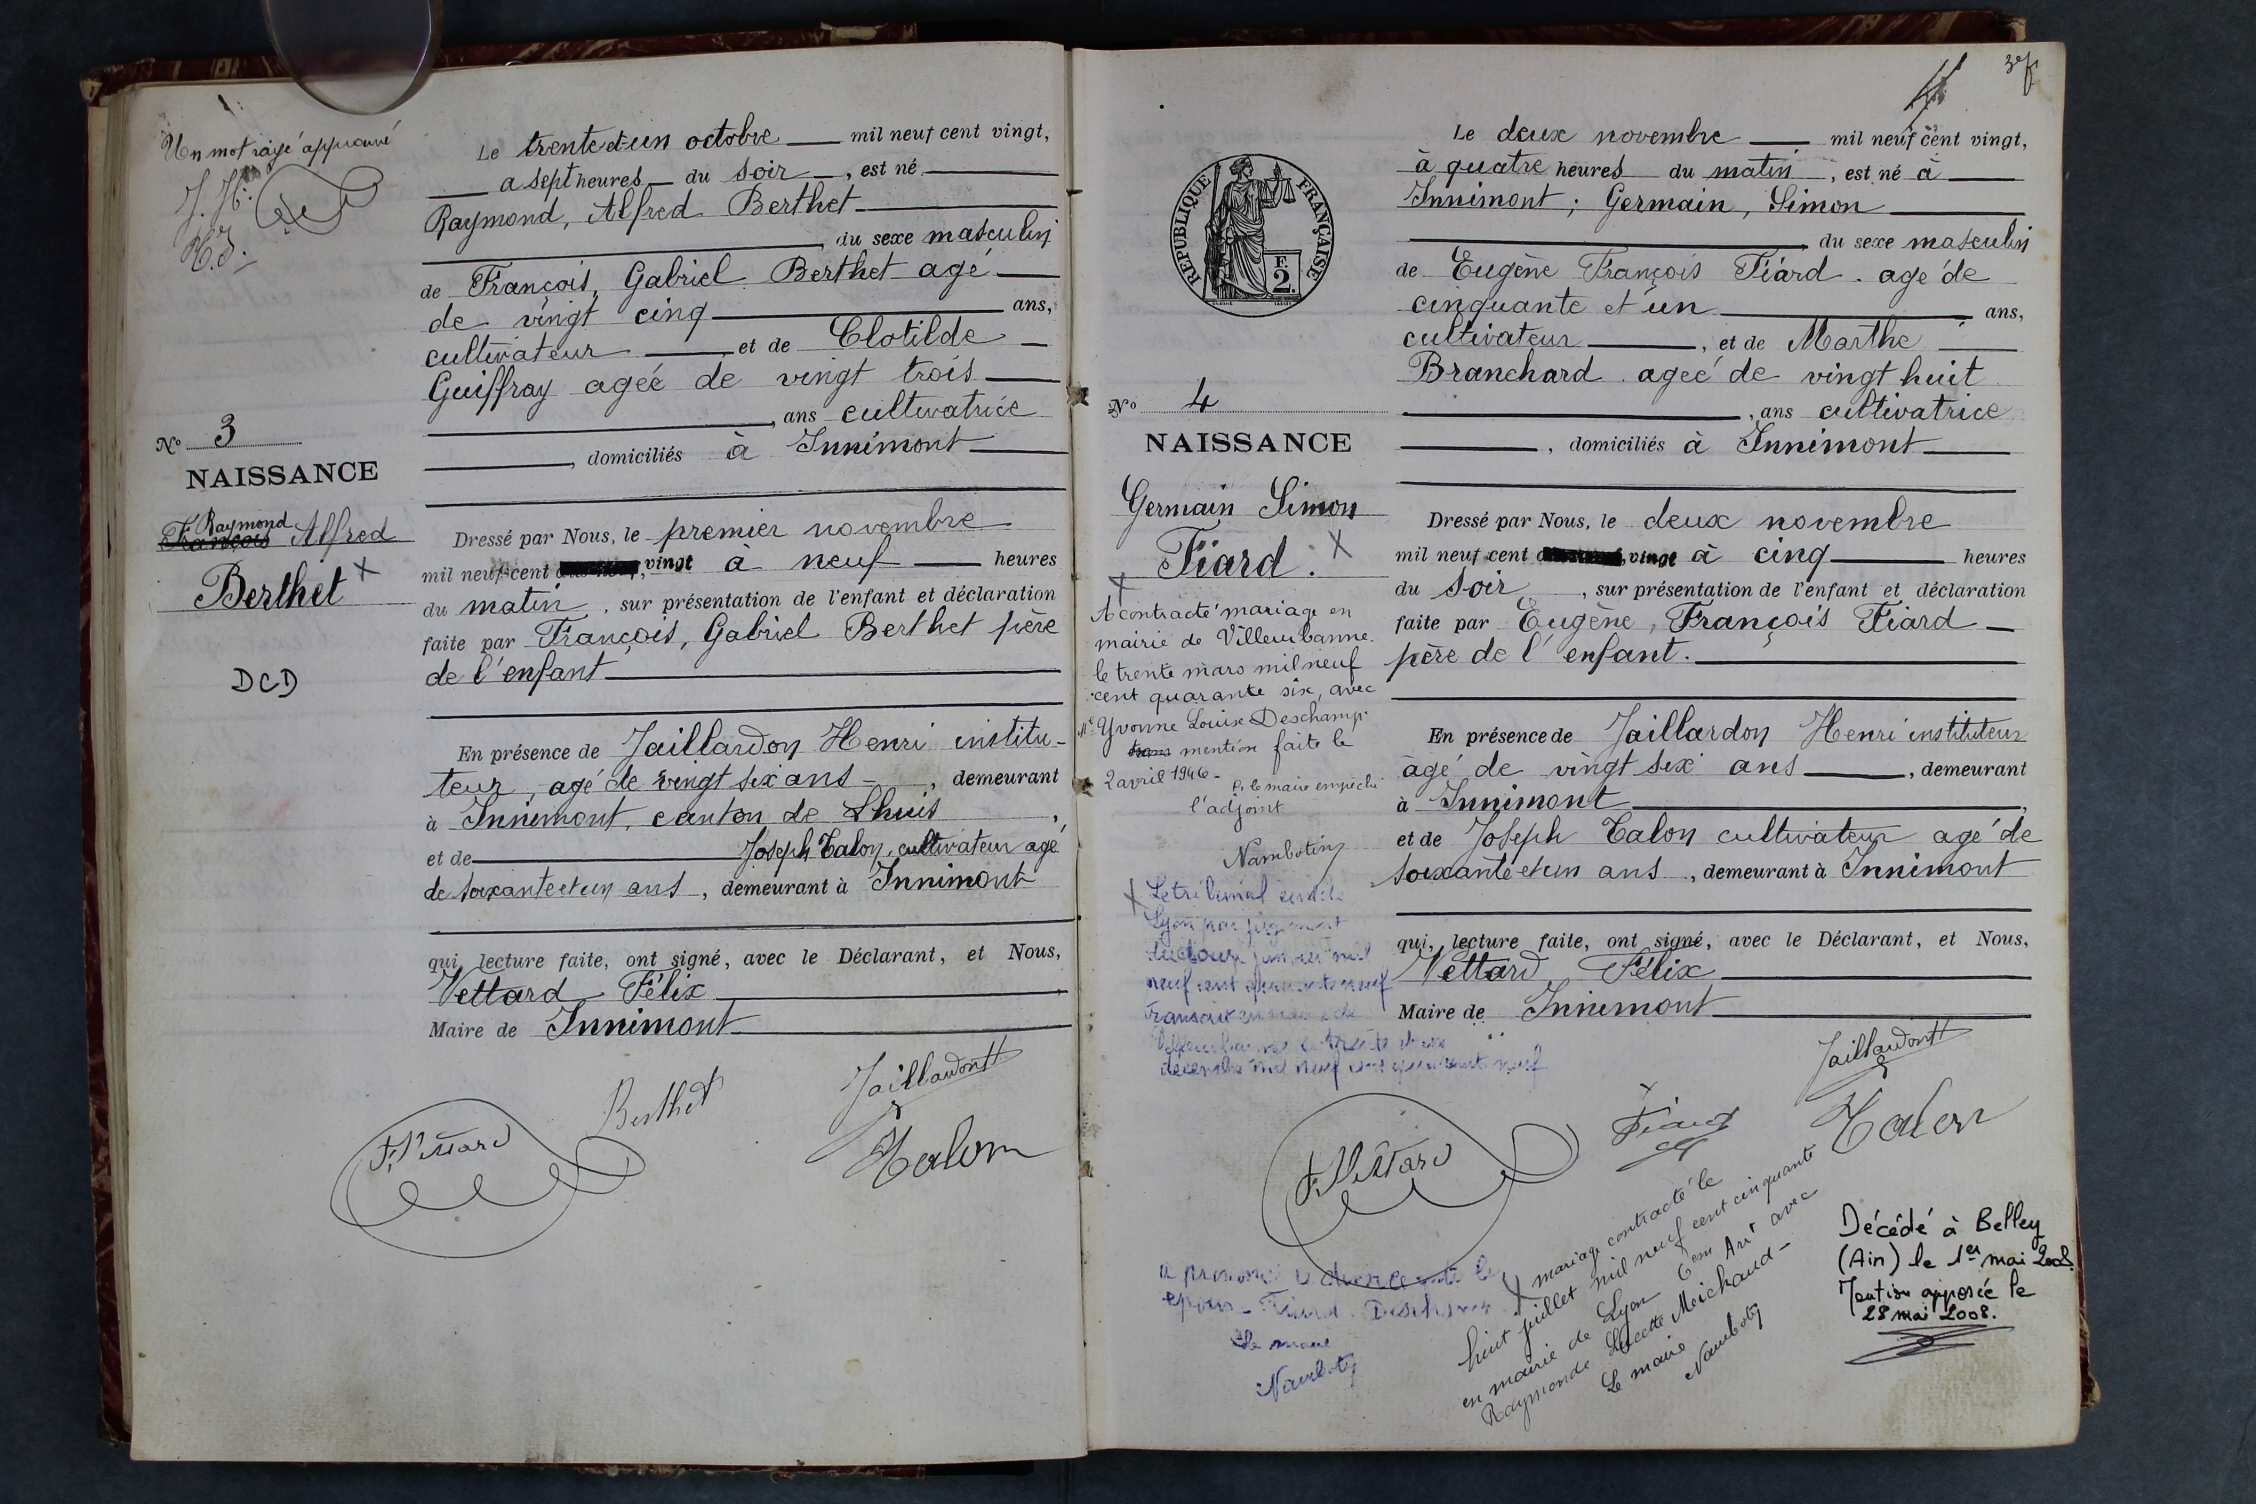 Un mot rayé approuvé
J. H.
N° 3
NAISSANCE
Raymond
François Alfred
Berthet
DCD
Le trente et un octobre mil neuf cent vingt,
a sept heures du soir, est né
Raymond, Alfred Berthet
, du sexe masculin
de François, Gabriel Berthet agé
de vingt cinq ans,
cultivateur et de Clotilde
Guiffray agée de vingt trois
, ans cultivatrice
, domiciliés à Innimont
Dressé par Nous, le premier novembre
mil neuf cent vingt à neuf heures
du matin, sur présentation de l'enfant et déclaration
faite par François, Gabriel Berthet père
de l'enfant
En présence de Jaillardon Henri institu-
teur, agé de vingt six ans, demeurant
à Innimont, canton de Lhuis,
et de Joseph Talon, cultivateur agé
de soixante et un ans, demeurant à Innimont
qui, lecture faite, ont signé, avec le Déclarant, et Nous,
Vettard Félix
Maire de Innimont
Jaillardon H
Berthet
F. Vettard
Talon
RÉPUBLIQUE FRANÇAISE
F.
2.
N° 4
NAISSANCE
Germain Simon
Fiard.
A contracté mariage en
mairie de Villeurbanne
le trente mars mil neuf
cent quarante six, avec
Yvonne Louise Deschamp
mention faite le
2 avril 1946 -
P. le maire empêché
l'adjoint
Nambotin
Le tribunal civil de
Lyon par jugement
du douze janvier mil
neuf cent quarante neuf
Transcrit en mairie de
Villeurbanne le trente et un
décembre mil neuf cent quarante neuf
a prononcé le divorce entre les
époux Fiard - Deschamp
Le maire
Nambotin
Le deux novembre mil neuf cent vingt,
à quatre heures du matin, est né à
Innimont; Germain, Simon
, du sexe masculin
de Eugène François Fiard. age de
cinquante et un ans,
cultivateur, et de Marthe
Branchard agée de vingt huit
, ans cultivatrice
, domiciliés à Innimont
Dressé par Nous, le deux novembre
mil neuf cent vingt à cinq heures
du soir, sur présentation de l'enfant et déclaration
faite par Eugène, François Fiard
père de l'enfant.
En présence de Jaillardon Henri instituteur
âgé de vingt six ans, demeurant
à Innimont,
et de Joseph Talon cultivateur agé de
soixante et un ans, demeurant à Innimont
qui, lecture faite, ont signé, avec le Déclarant, et Nous,
Vettard Félix
Maire de Innimont
Jaillardon H
Fiard
Talon
F. Vettard
mariage contracté le
huit juillet mil neuf cent cinquante
en mairie de Lyon 6em Arrt avec
Raymonde Lucette Meichaud -
Le maire
Nambotin
Décédé à Belley
(Ain) le 1er mai 2008.
Mention apposée le
28 mai 2008.